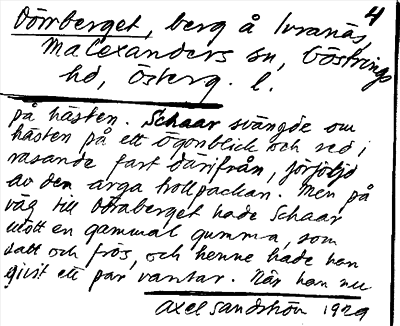 4
Dörrberget, berg å Ivranäs,
Malexanders sn, Göstrings
hd, Österg. l.
på hästen. Schaar svängde om
hästen på ett ögonblick och red i
rasande fart därifrån, förföljd
av den arga trollpackan. Men på
väg till Dörraberget hade Schaar
mött en gammal gumma, som
satt och frös, och henne hade han
givit ett par vantar. När han nu
Axel Sandström 1929